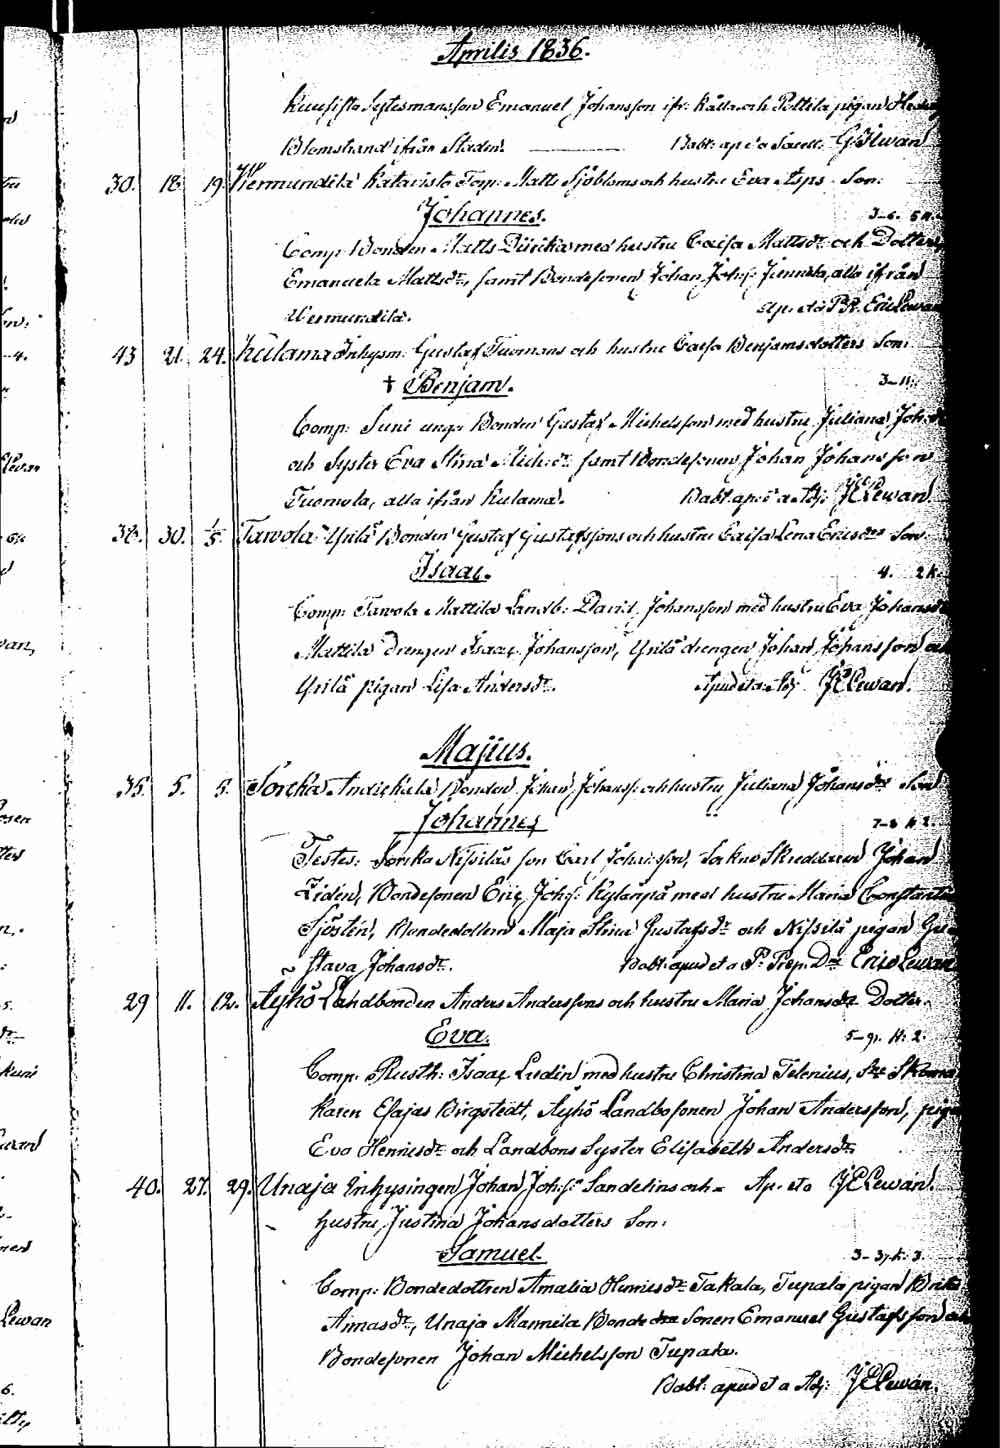 Aprilis 1836.
Kuusisto Sytesmansson Emanuel Johansson ifr: Källa och Pottila pigan
Blomstrand ifrån Staden. Babt: ap: et a Sacell. G: Ilwan
30. 18. 19. Wermundila Katavisto Torp: Matts Sjöbloms och hustru Eva Asps Son:
Johannes. 3-6. 5 K.
Comp: Bonden Matts Diirika med hustru Caisa Mattsdr och Dotter
Emanuela Mattsdr, samt Bondesonen Johan Johss: Jennila, alla ifrån
Wermundila. Ap. et a P.P. Eric Lewan
43 21. 24. Kulama Inhysn: Gustaf Tuomans och hustru Caisa Benjamsdotters Son:
† Benjam. 3-11.
Comp: Suni unga Bonden Gustaf Michelsson med hustru Juliana Joh:
och Syster Eva Stina Mich:dr samt Bondesonen Johan Johansson
Tuomola, alla ifrån Kulama. Babt: ap: et a Adj: J E Lewan
38. 30. 1/5. Tarvola Yrilä Bonden Gustaf Gustafssons och hustru Caisa Lena Ericsdrs Son:
Isaac. 4. 2 K.
Comp: Tarvola Mattila Landb: David Johansson med hustru Eva Johansdr
Mattila Drengen Isaac Johansson, Yrilä drengen Johan Johansson och
Yrilä pigan Lisa Andersdr. Apud et a Adj J E Lewan.
Majius.
35. 5. 5. Sorcka Andickala Bonden Johan Johanss: och hustru Juliana Johansdrs Son
Johannes 7-8 K 2.
Testes: Sorcka Nissiläs son Carl Johansson, Sockne Skreddaren Johan
Lidin, Bondesonen Eric Johs: Kylänpä med hustru Maria Constantia
Sjöstén, Bondedottern Maja Stina Gustafsdr och Nissilä pigan Gu-
stava Johansdr. Babt: apud et a P: Prep: Dnr Eric Lewan
29 11. 12. Ayhö Landbonden Anders Anderssons och hustru Maria Johansdr Dotter.
Eva. 5-9. K: 2.
Comp: Rusth: Isaac Ludin med hustru Christina Telenius, Skoma-
karen Esajas Birgstedt, Ayhö Landbosonen Johan Andersson, pigan
Eva Henricsdr och Landbons Syster Elisabeth Andersdr.
40. 27. 29. Unaja Inhysingen Johan Johss: Sandelins och Ap. et a J E Lewan.
hustru Justina Johansdotters Son:
Samuel. 3-37. K. 3.
Comp: Bondedottren Amalia Henricsdr Takala, Tupala pigan Brita
Aimasdr, Unaja Mannila Bonde Sonen Emanuel Gustafsson och
Bondesonen Johan Michelsson Tupala.
Babt: apud et a Adj: J E Lewan.